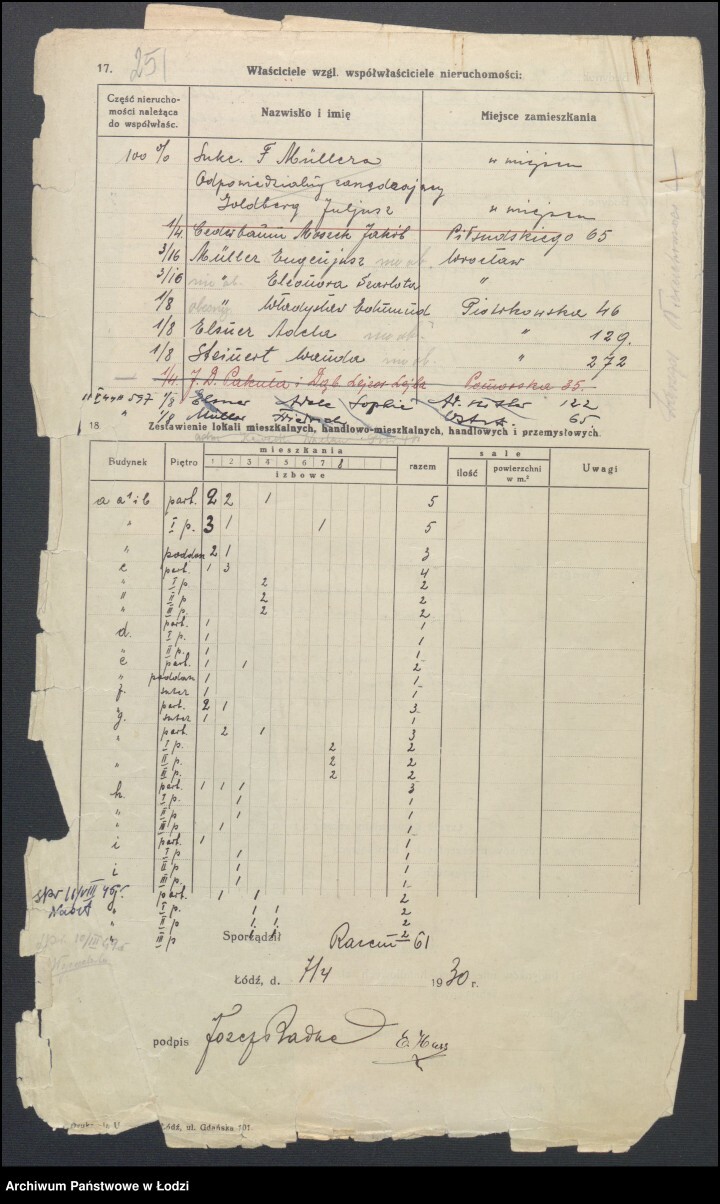 17. 251 Właściciele wzgl. współwłaściciele nieruchomości:
Część nierucho-
mości należąca
do współwłaśc.
Nazwisko i imię
Miejsce zamieszkania
100 % Sukc. F Müllera w miejscu
Odpowiedzialny zarządzający
Goldberg Juljusz w miejscu
1/4 Cederbaum Moszek Jakób Piłsudskiego 65
3/16 Müller Eugenjusz Wrocław
3/16 " Eleonora Szarlota "
1/8 " Władysław Edmund Piotrkowska 46
1/8 Elsner Adela " 129.
1/8 Steinert Wanda " 272
1/4 J. D. Pakuła i Dąb Lejzor Lejba Pomorska 35
1/8 Elsner Adele Sophie Ad. Hitler 122
" 1/8 Müller Friedrich 65
18. Zestawienie lokali mieszkalnych, handlowo-mieszkalnych, handlowych i przemysłowych.
Budynek Piętro mieszkania razem sale Uwagi
1 2 3 4 5 6 7 8 ilość powierzchni
w m.²
izbowe
a a¹ i b part. 2 2 1 5
" I p. 3 1 1 5
" poddasz 2 1 3
c part. 1 3 4
" I p. 2 2
" II p. 2 2
" III p. 2 2
d. part. 1 1
I p. 1 1
" II p. 1 1
e part. 1 1 2
" poddasz 1 1
f. suter 1 1
part. 2 1 3
g. suter 1 1
" part. 2 1 3
I p. 2 2
" II p. 2 2
III p. 2 2
h. part. 1 1 1 3
I p. 1 1
" II p 1 1
" III p 1 1
i part. 1 1
I p 1 1
i II p 1 1
III p. 1 1
part. 1 1 2
" I p. 1 1 2
" II p 1 1 2
" III p 1 1 2
Sporządził Razem 61
Łódź, d. 7/4 1930 r.
podpis Józef Radke E. Huss
Łódź, ul. Gdańska 101.
Archiwum Państwowe w Łodzi